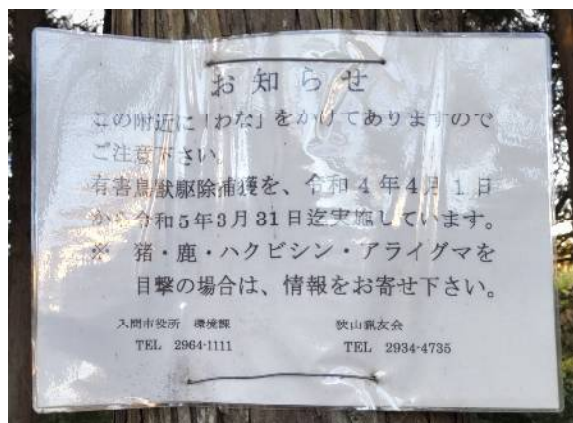 お知らせ
この附近に「わな」をかけてありますので
ご注意下さい。
有害鳥獣駆除捕獲を、令和4年4月1日
から令和5年3月31日迄実施しています。
※ 猪・鹿・ハクビシン・アライグマを
目撃の場合は、情報をお寄せ下さい。
入間市役所 環境課 狭山猟友会
TEL 2964-1111 TEL 2934-4735